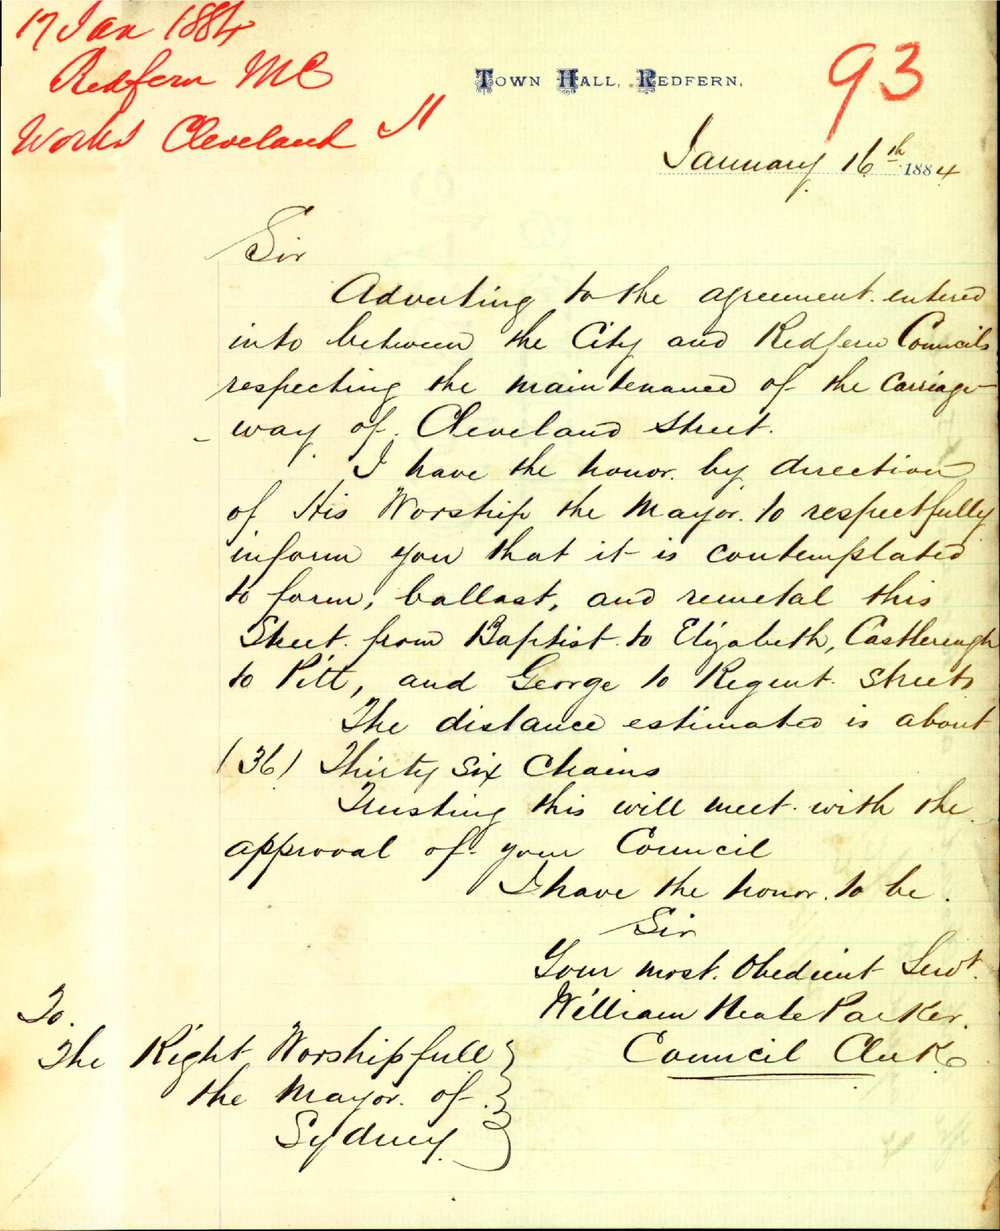 17 Jan 1884
Redfern MC
Works Cleveland St
93
TOWN HALL, REDFERN,
January 16th 1884
Sir
Adverting to the agreement entered
into between the City and Redfern Councils
respecting the maintenance of the carriage
- way of Cleveland Street.
I have the honor by direction
of His Worship the Mayor to respectfully
inform you that it is contemplated
to form, ballast, and remetal this
Street from Baptist to Elizabeth, Castlereagh
to Pitt, and George to Regent Streets
The distance estimated is about
(36) Thirty Six Chains
Trusting this will meet with the
approval of your Council
I have the honor to be
Sir
Your most Obedient Servt.
William Neale Parker.
Council Clerk
To.
The Right Worshipfull
the Mayor of
Sydney